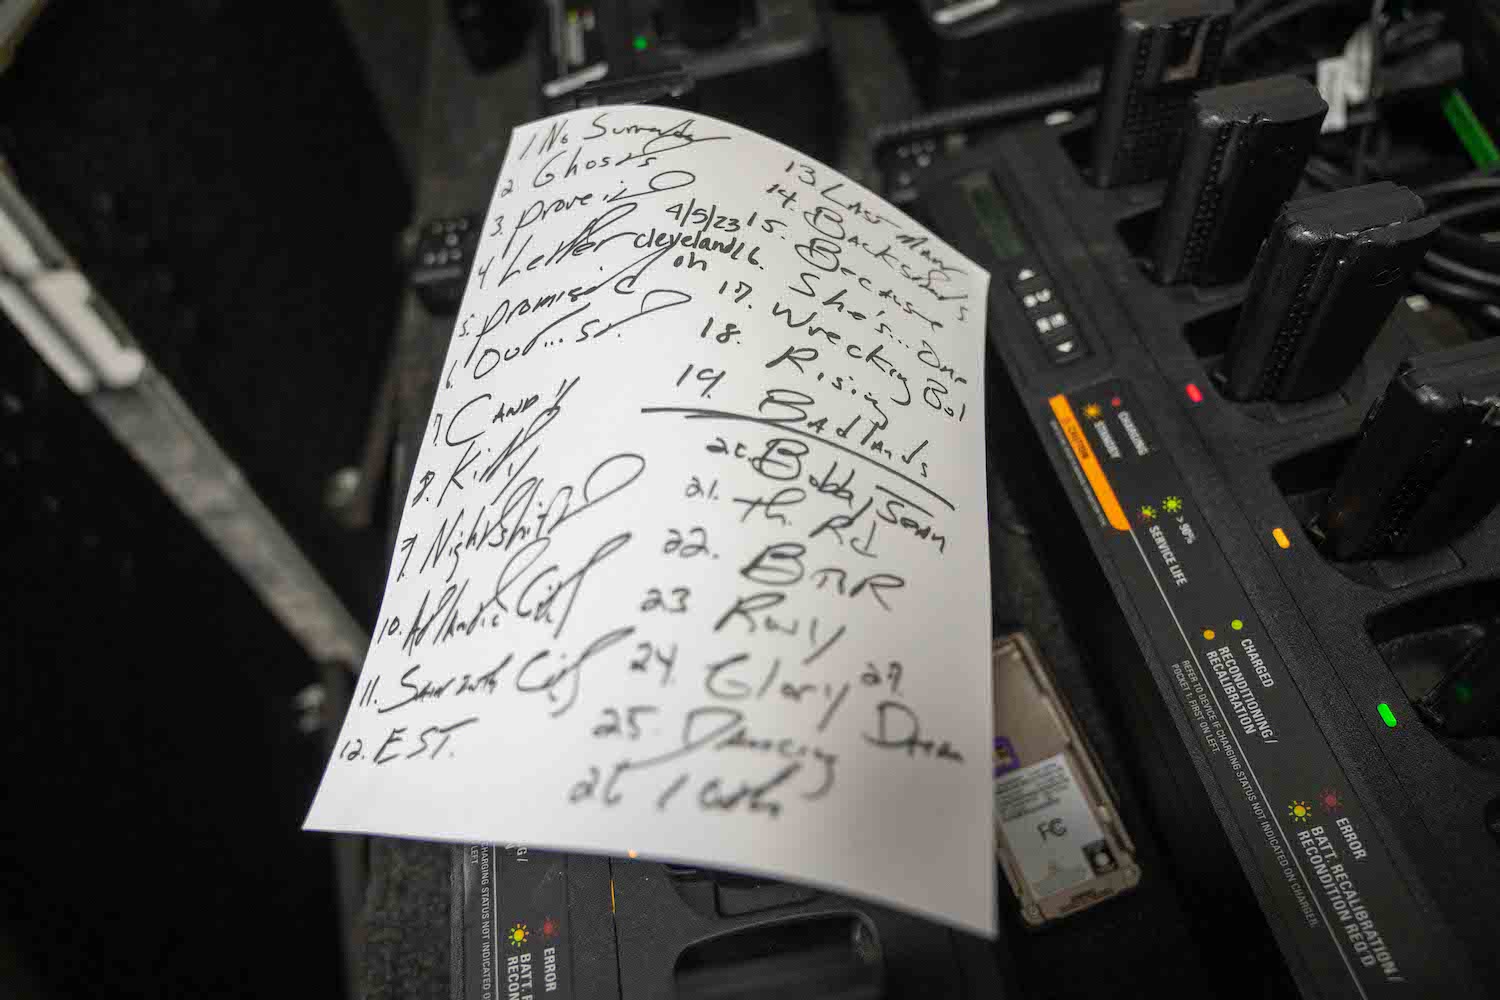 1. No Surrender
2. Ghosts
3. Prove it
4 Letter
5. Promised
6. Out... St.
7. Candy
8. Kitty
9. Nightshift
10. Atlantic City
11. Shin 2 oth City
12. E ST.
4/5/23
Cleveland
oh
13 Last Man
14. Backstreets
15. Because
16. She's... One
17. Wrecking Bal
18. Rising
19. Badlands
20. Bobby Jean
21. th. Rd
22. BTTR
23 Rosly
24. Glory
25. Dancing
26 10th
27 Dream
CHARGING
STANDBY
CAUTION
> 90%
SERVICE LIFE
CHARGED
RECONDITIONING /
RECALIBRATION
REFER TO DEVICE IF CHARGING STATUS NOT INDICATED ON CHARGER.
POCKET 1, FIRST ON LEFT.
ERROR
BATT. RECALIBRATION /
RECONDITION REQ'D
FC
CHARGING STATUS NOT INDICATED ON
LEFT
ERROR
BATT. R
RECON